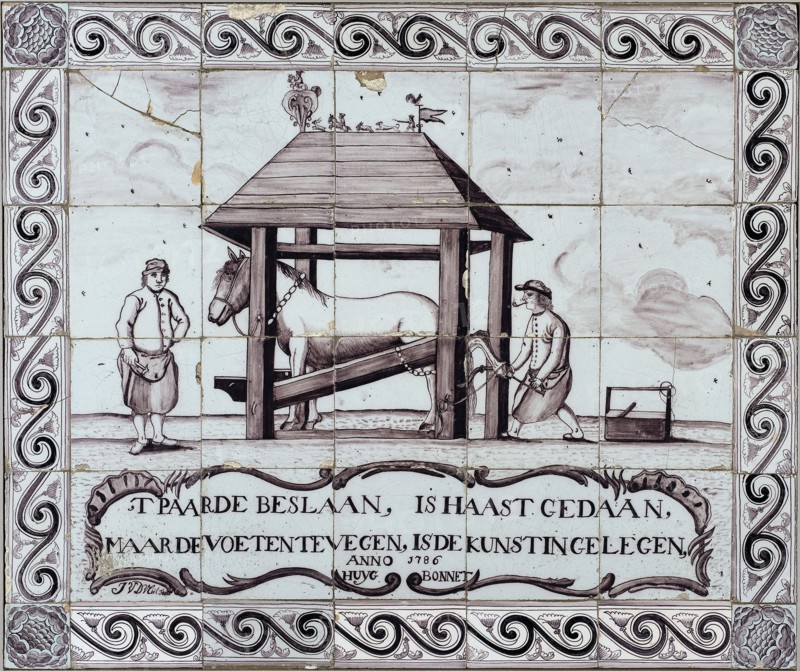 'T PAARDE BESLAAN, IS HAAST GEDAAN,
MAAR DE VOETEN TE VEGEN, IS DE KUNST IN GELEGEN,
ANNO 1786
HUYG BONNET